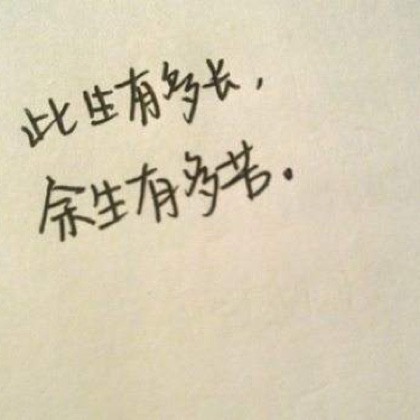 此生有多长，
余生有多苦.